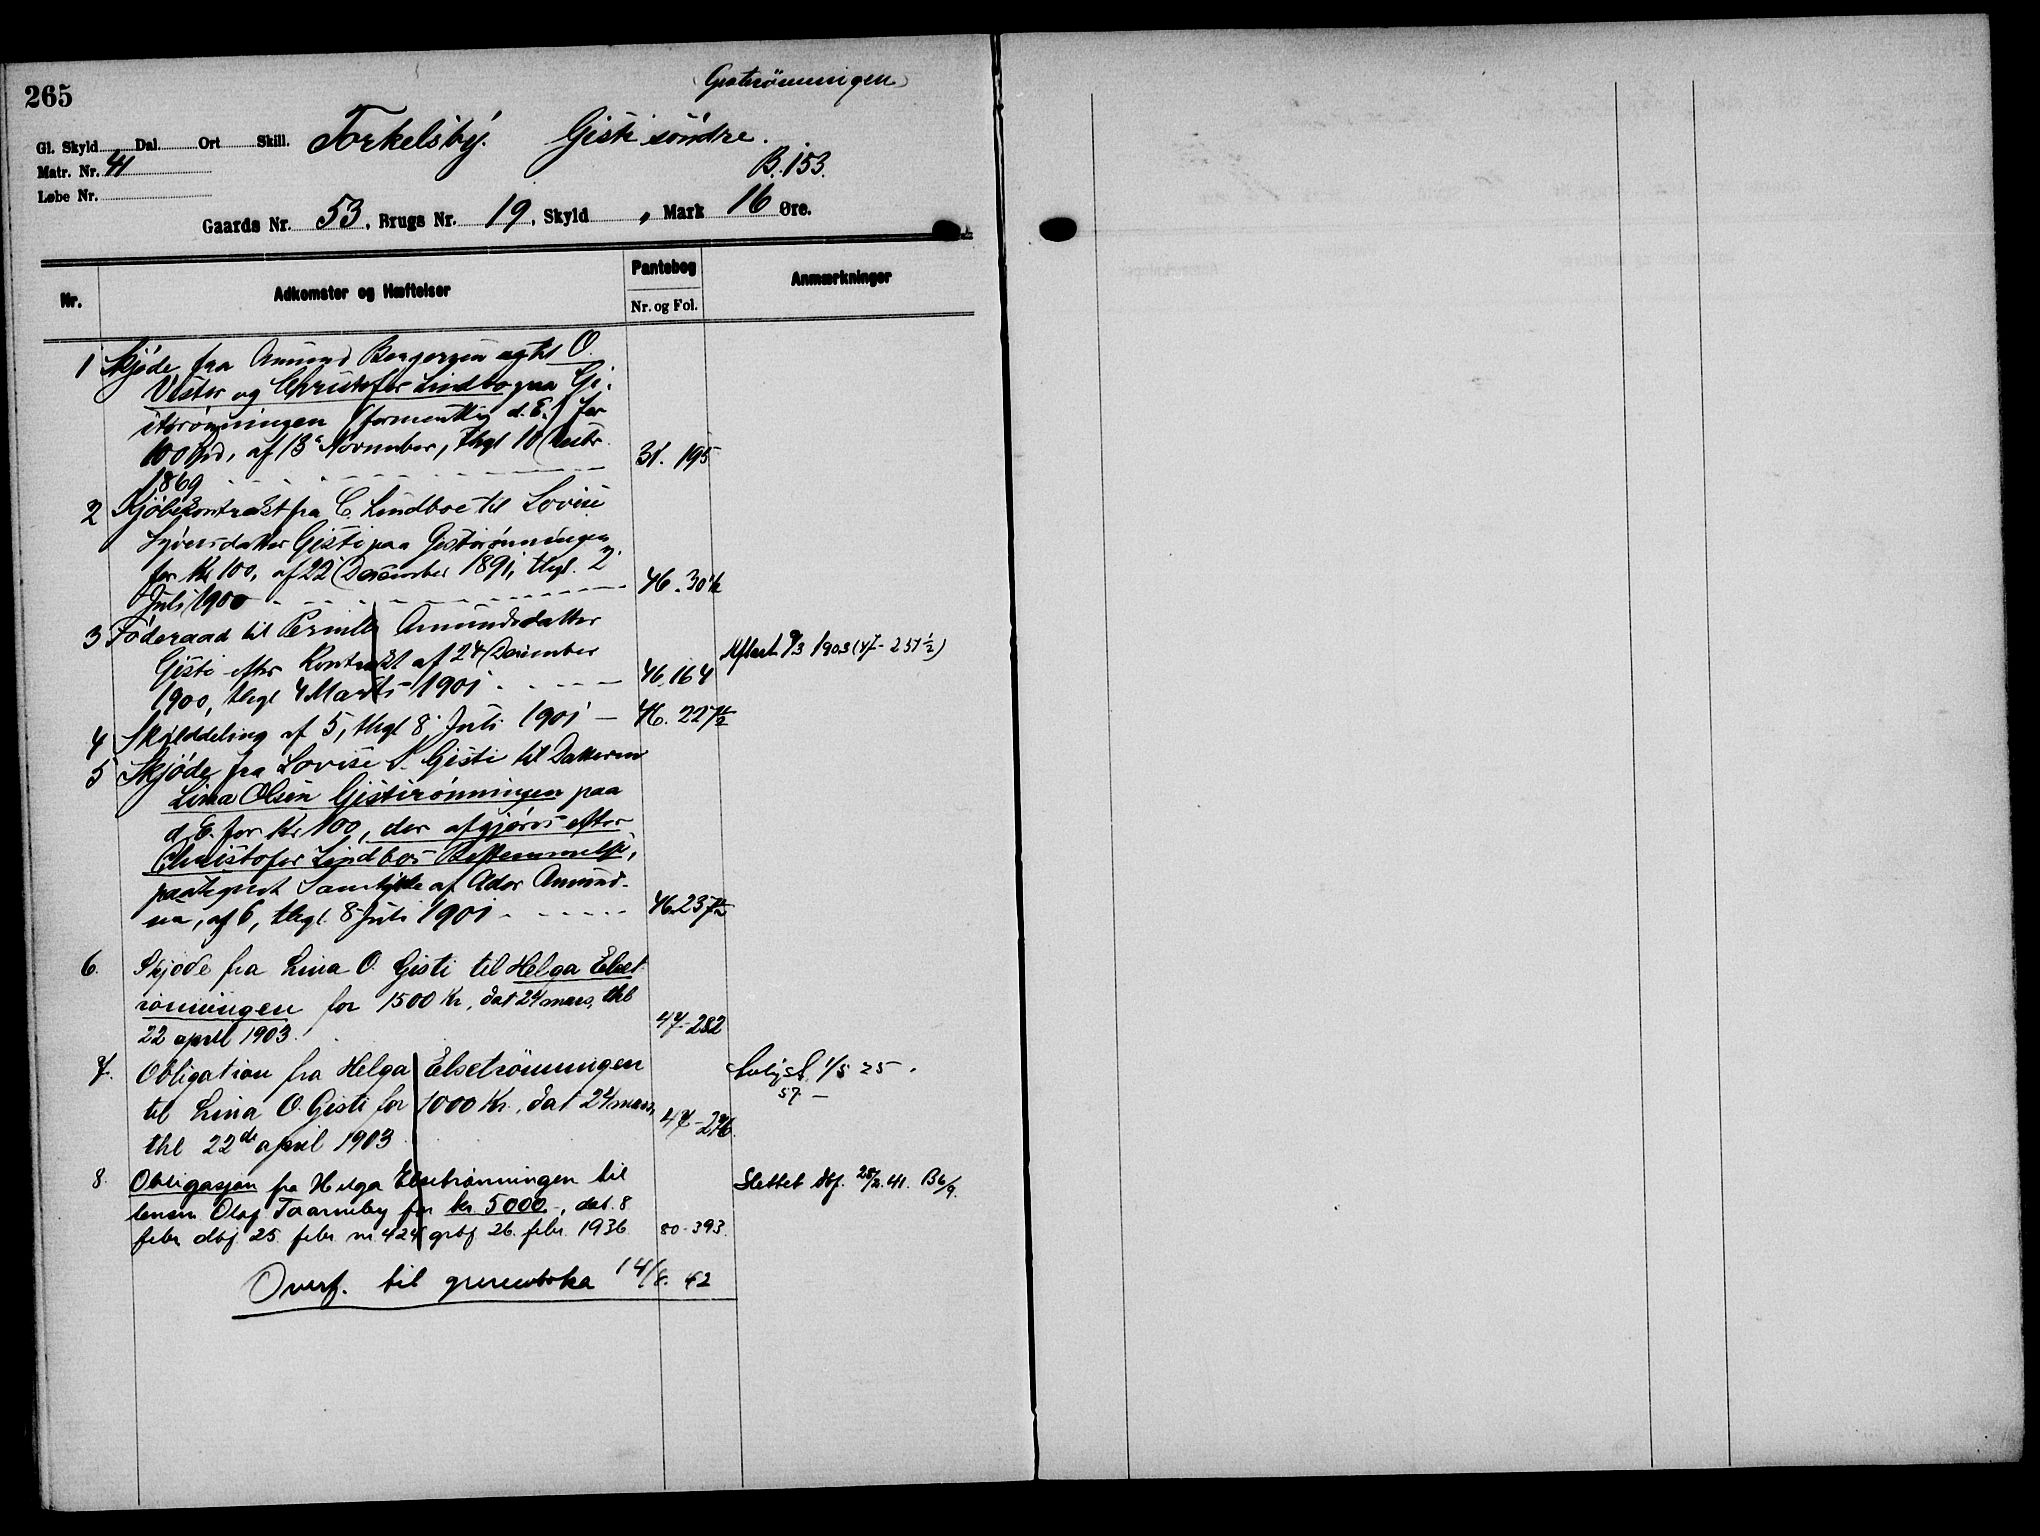 265
(Giströnningen)
Gl. Skyld Dal. Ort Skill. Torkelsby. Gisti söndre.
Matr. Nr. 41
B. 153.
Løbe Nr.
Gaards Nr. 53, Brugs Nr. 19, Skyld , Mark 16 Øre.
Nr. Adkomster og Hæftelser Pantebog Anmærkninger
Nr. og Fol.
1 Skjøde fra Amund Borgersen til O.
Vester og Christofer Lindbo paa Gi-
stirønningen (formentlig d. E.) for
100 Spd, af 13 November, thgl 10 Decbr. 31. 195
1869
2 Kjøbekontrakt fra C. Lindboe til Lovise
Syversdatter Gisti paa Gistirønningen
for Kr 100, af 22 December 1891, thgl. 2
Juli 1900 46. 30
3 Føderaad til Pernille Amundsdatter
Gisti efter Kontrakt af 24 December Aflæst 9/3 1903 (47-251 1/2)
1900, thgl 4 Marts 1901 46. 164
4 Skylddeling af 5, thgl 8 Juli 1901 — 46. 227 1/2
5 Skjøde fra Lovise S. Gisti til Datteren
Lina Olsen Gistirønningen paa
d. E. for Kr 100, der afgjøres efter
Christofer Lindbos Bestemmelse,
paategnet Samtykke af Ador Amund-
sen, af 6, thgl. 8 Juli 1901 46. 237 1/2
6. Skjøde fra Lina O. Gisti til Helga Elset
rönningen for 1500 Kr, dat 24 mars, thl
22 april 1903. 47-282
7. Obligation fra Helga Elsetrönningen
til Lina O. Gisti for 1000 Kr., dat 24 mars, 1/5 25.
57 —
thl 22de april 1903 47-276.
8. Obligasjon fra Helga Elsetrønningen til Slettet dbf. 25/2. 41. B6/9.
lensm. Olaf Taarneby for kr. 5000.-, dat. 8
febr dbf 25. febr nr. 424 grbf 26. febr. 1936 80-393.
Overf. til grunnboka 14/8. 42